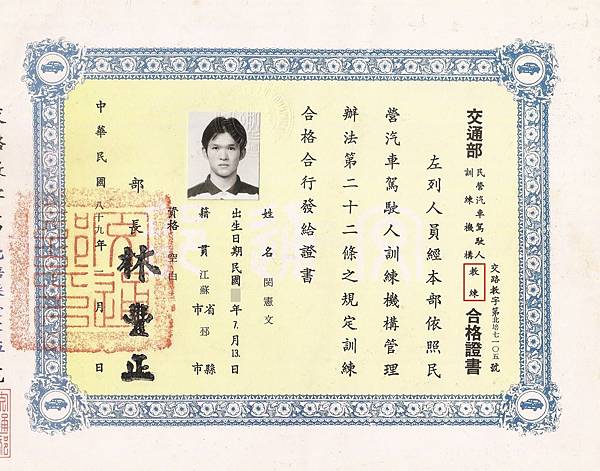 交通部
民營汽車駕駛人
訓練機構
教練
合格證書
交路教字第北培七一〇五號
左列人員經本部依照民
營汽車駕駛人訓練機構管理
辦法第二十二條之規定訓練
合格合行發給證書
姓名 閔憲文
出生日期民國 年7.月13.日
籍貫 江蘇 省市 邳 縣市
資格 空白
部長 林豐正
中華民國八十九年 月 日